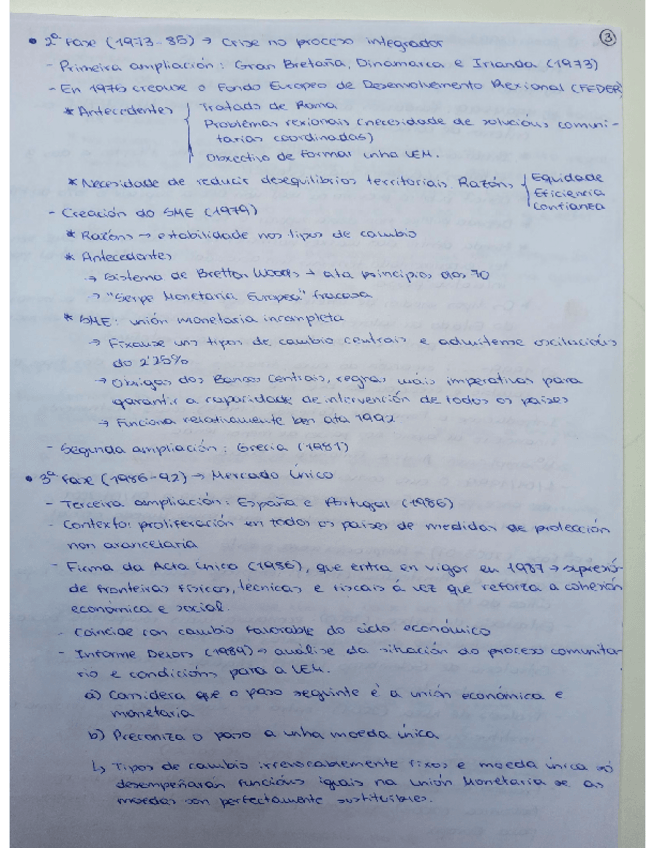 3
• 2ª Fase (1973-85) → Crise no proceso integrador
- Primeira ampliación: Gran Bretaña, Dinamarca e Irlanda (1973)
- En 1976 crease o Fondo Europeo de Desenvolvemento Rexional (FEDER)
* Antecedentes
Tratado de Roma
Problemas rexionais (necesidade de solucións comuni-
tarias coordinadas)
Obxectivo de formar unha UEM.
* Necesidade de reducir desequilibrios territoriais. Razóns
Equidade
Eficiencia
Confianza
- Creación do SME (1979)
* Razóns → estabilidade nos tipos de cambio
* Antecedentes
→ Sistema de Bretton Woods → ata principios dos 70
→ "Serpe Monetaria Europea" fracasa
* SME: unión monetaria incompleta
→ Fíxanse uns tipos de cambio centrais e admítense oscilacións
do 2'25%
→ Obrigas dos Bancos Centrais, regras máis imperativas para
garantir a capacidade de intervención de todos os países
→ Funciona relativamente ben ata 1992
- Segunda ampliación: Grecia (1981)
• 3ª Fase (1986-92) → Mercado Único
- Terceira ampliación: España e Portugal (1986)
- Contexto: proliferación en todos os países de medidas de protección
non arancelaria
- Firma da Acta Única (1986), que entra en vigor en 1987 → supresió
de fronteiras físicas, técnicas e fiscais á vez que reforza a cohesión
económica e social.
- Coincide con cambio favorable do ciclo económico
- Informe Delors (1989) → análise da situación do proceso comunita-
rio e condicións para a UEM.
a) Considera que o paso seguinte é a unión económica e
monetaria
b) Preconiza o paso a unha moeda única
↳ Tipos de cambio irrevocablemente fixos e moeda única só
desempeñarán funcións iguais na Unión Monetaria se as
moedas son perfectamente sustituibles.